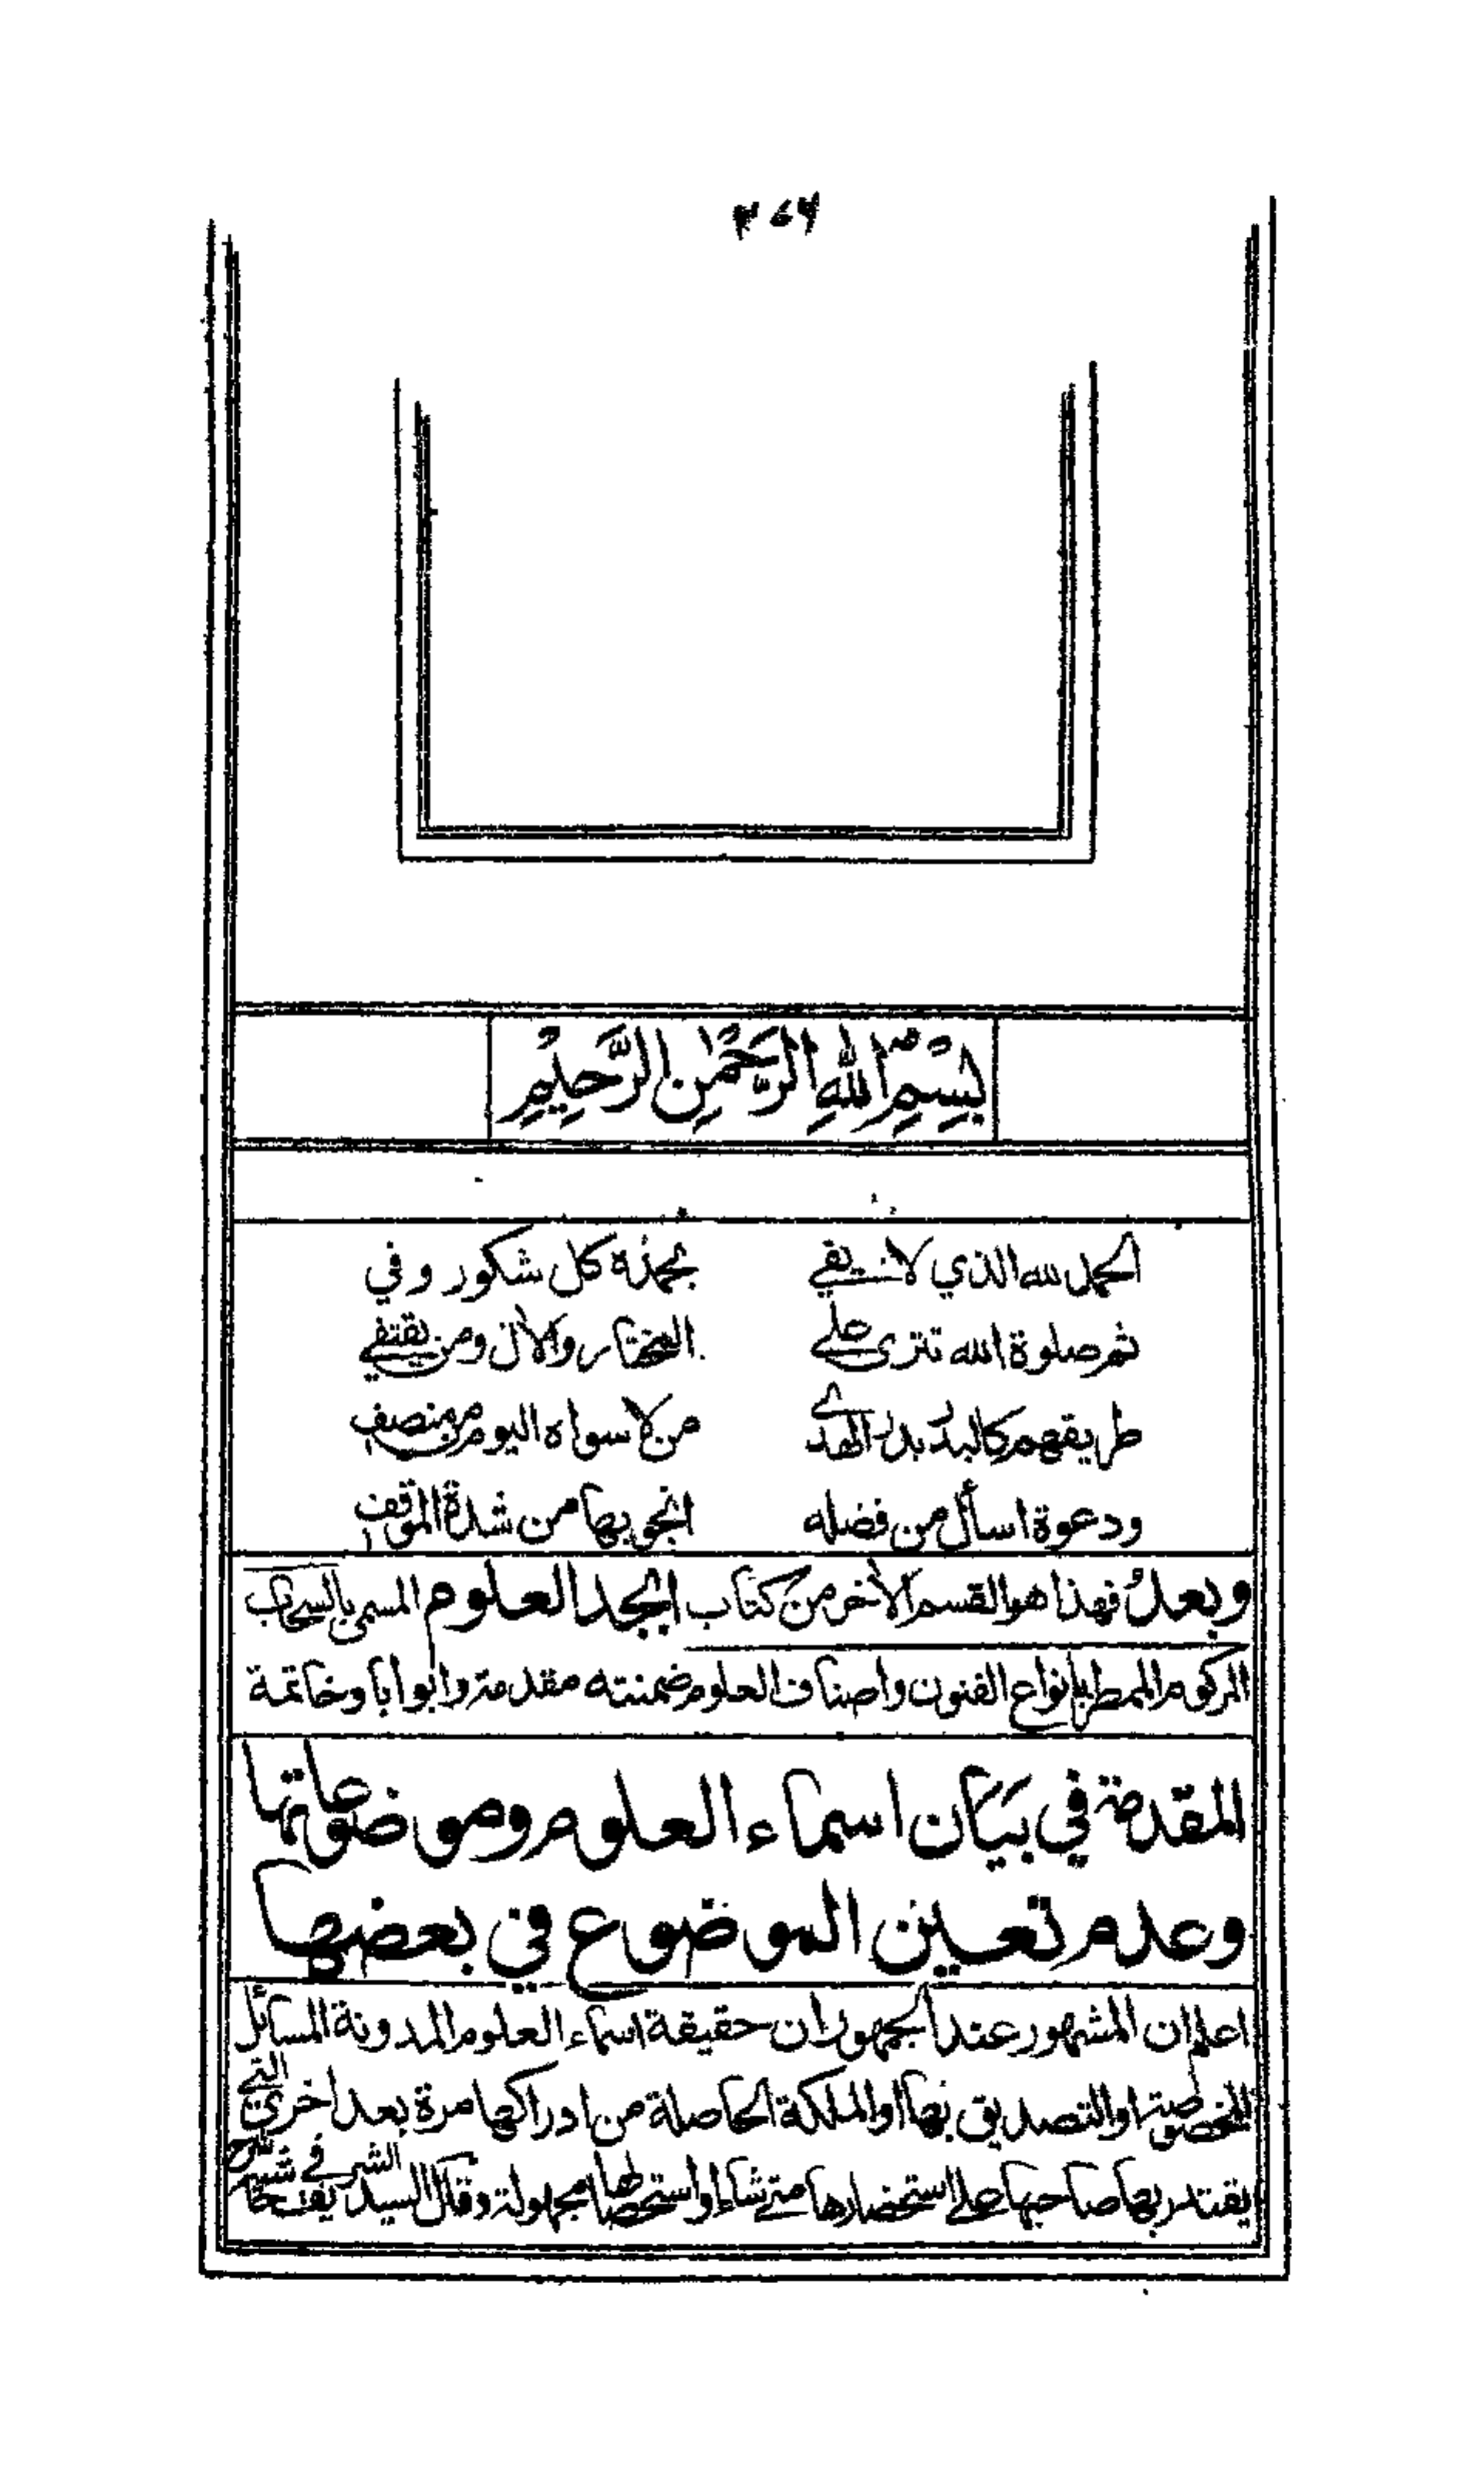 بِسْمِ اللهِ الرَّحْمٰنِ الرَّحِيْمِ
الحمد لله الذي لا يفي بحمده كل شكور وفي
ثم صلوة الله تترى على المختار والآل ومن يقتفي
طريقهم كالبدر بدر الهدى من لا سواه اليوم من منصف
ودعوة اسأل من فضله انجو بها من شدة الموقف
وبعد فهذا هو القسم الآخر من كتاب ابجد العلوم المسمى بالسحاب
المركوم الممطر بانواع الفنون واصناف العلوم ضمنته مقدمة وابوابا وخاتمة
المقدمة في بيان اسماء العلوم وموضوعاتها
وعدم تعيين الموضوع في بعضها
اعلم ان المشهور عند الجمهور ان حقيقة اسماء العلوم المدونة المسائل
المخصوصة او التصديق بها او الملكة الحاصلة من ادراكها مرة بعد اخرى التي
يقتدر بها صاحبها على استحضارها متى شاء او استحصالها مجهولة وقال السيد الشريف في حاشية شرح